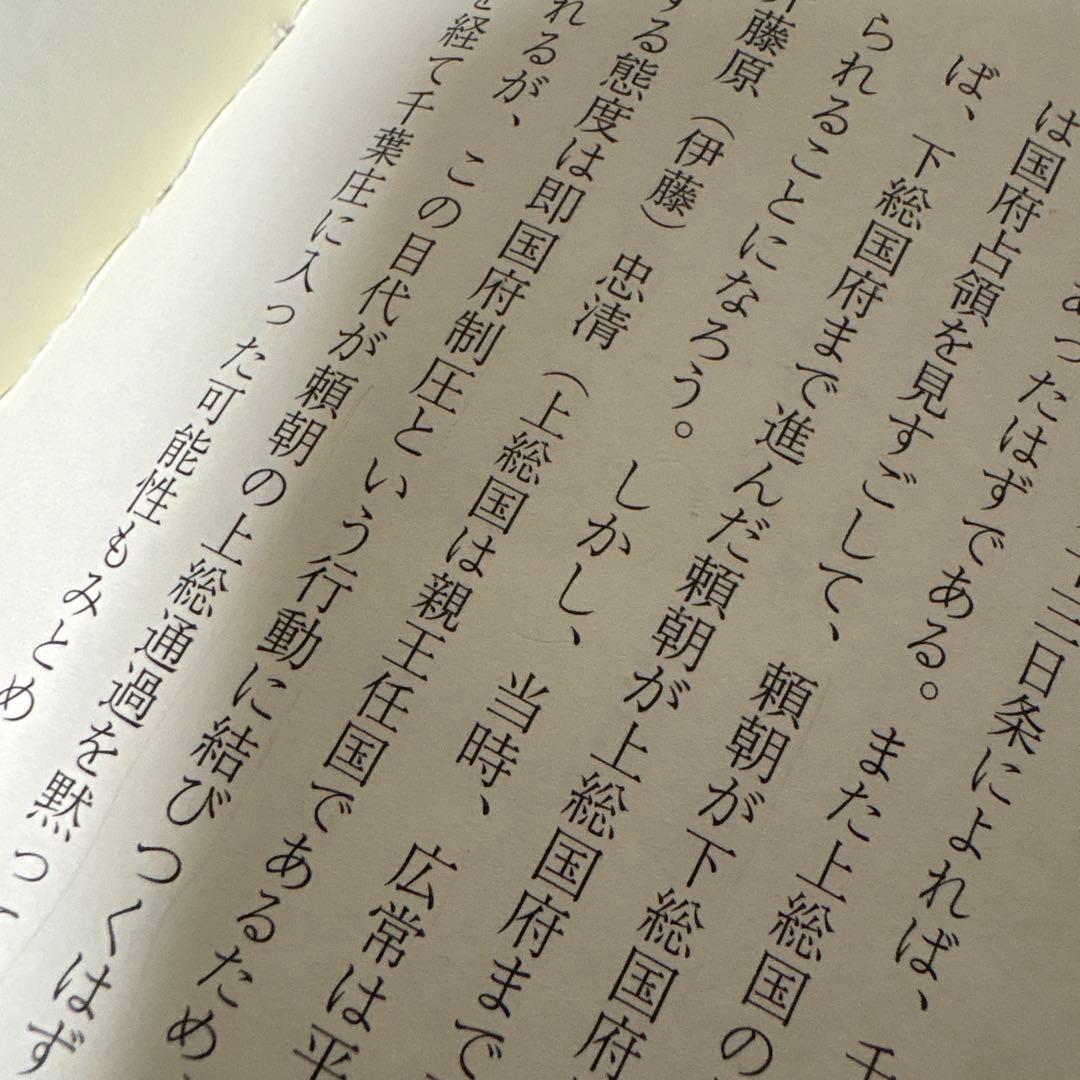 十三日条によれば、千
あったはずである。また上総国の
は国府占領を見すごして、頼朝が下総国府
ば、下総国府まで進んだ頼朝が上総国府まで
られることになろう。しかし、当時、広常は平
藤原（伊藤）忠清（上総国は親王任国であるため
する態度は即国府制圧という行動に結びつくはず
れるが、この目代が頼朝の上総通過を黙って
を経て千葉庄に入った可能性もみとめ